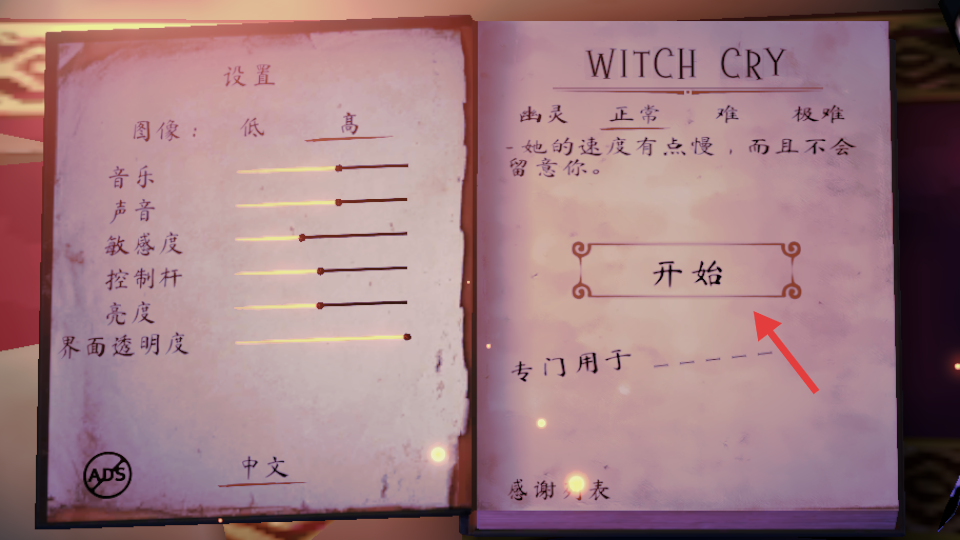 设置
图像： 低 高
音乐
声音
敏感度
控制杆
亮度
界面透明度
ADS
中文
WITCH CRY
幽灵 正常 难 极难
-她的速度有点慢，而且不会
留意你。
开始
专门用于 _ _ _ _ _
感谢列表